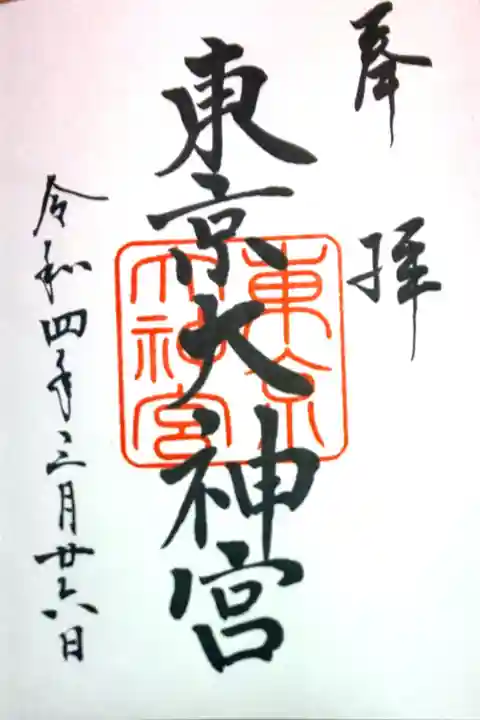 奉拝
東京大神宮
東京
大神宮
令和四年三月廿六日